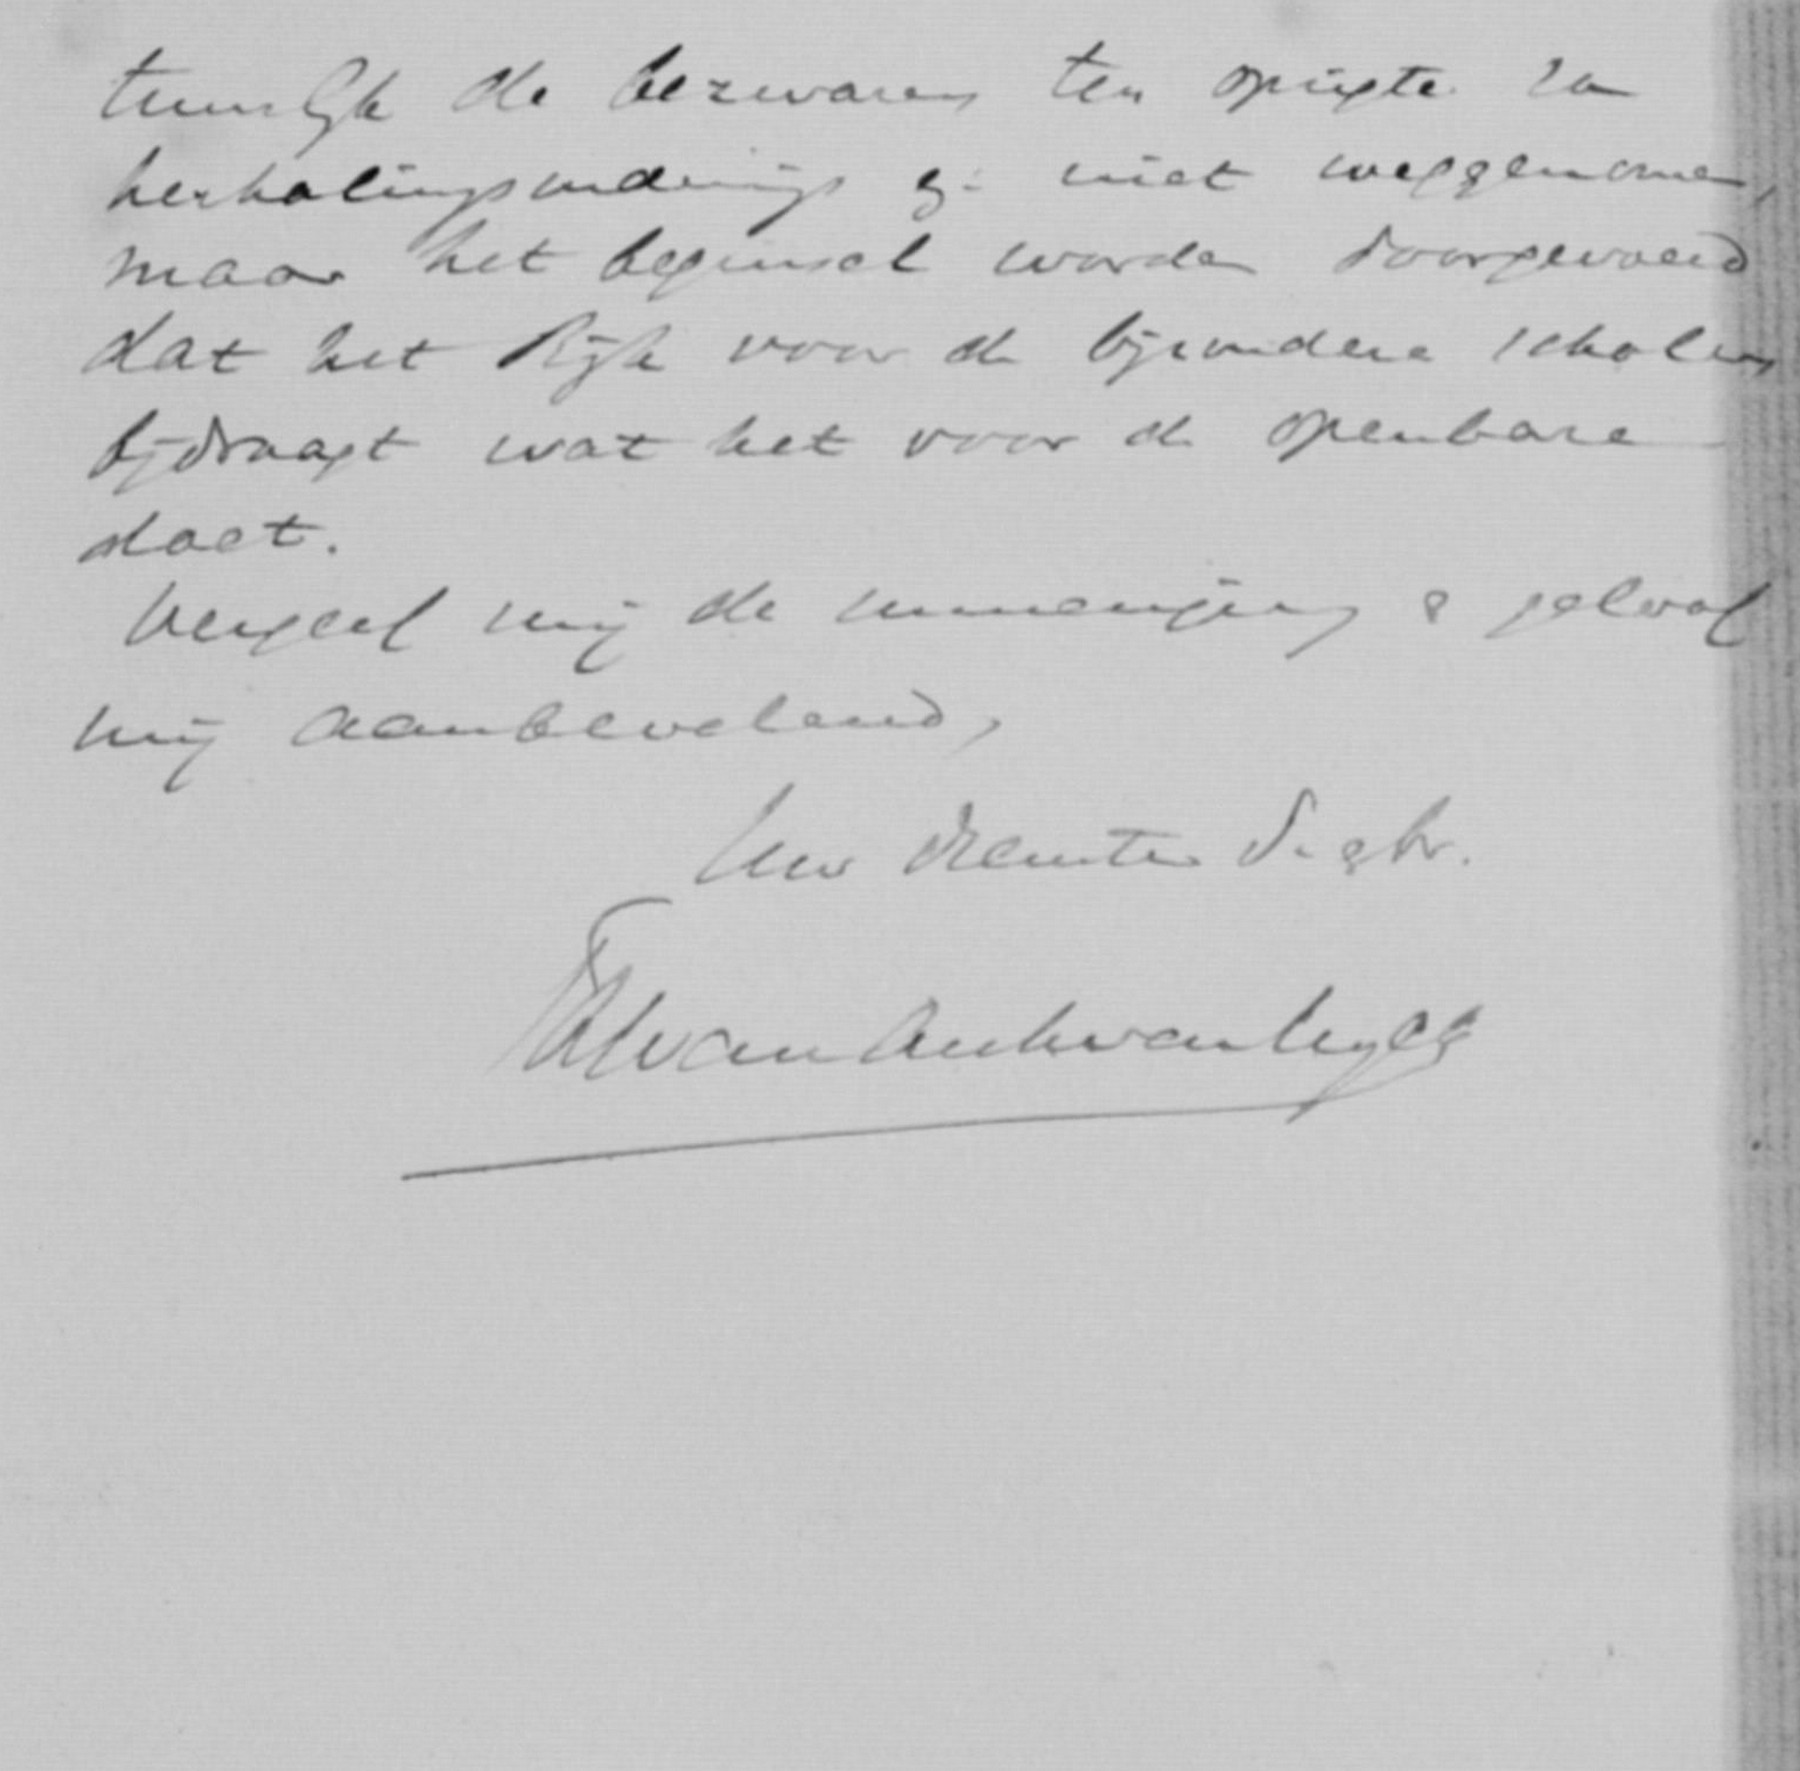 tuurlijk de bezwaren ten opzigte van
herhalingsonderwijs niet weggenomen,
maar het beginsel worden doorgevoerd
dat het Rijk voor de bijzondere scholen
bijdraagt wat het voor de openbare
doet.
Vergeef mij de inmenging & geloof
mij aanbevelend,
Uw dienstw
van